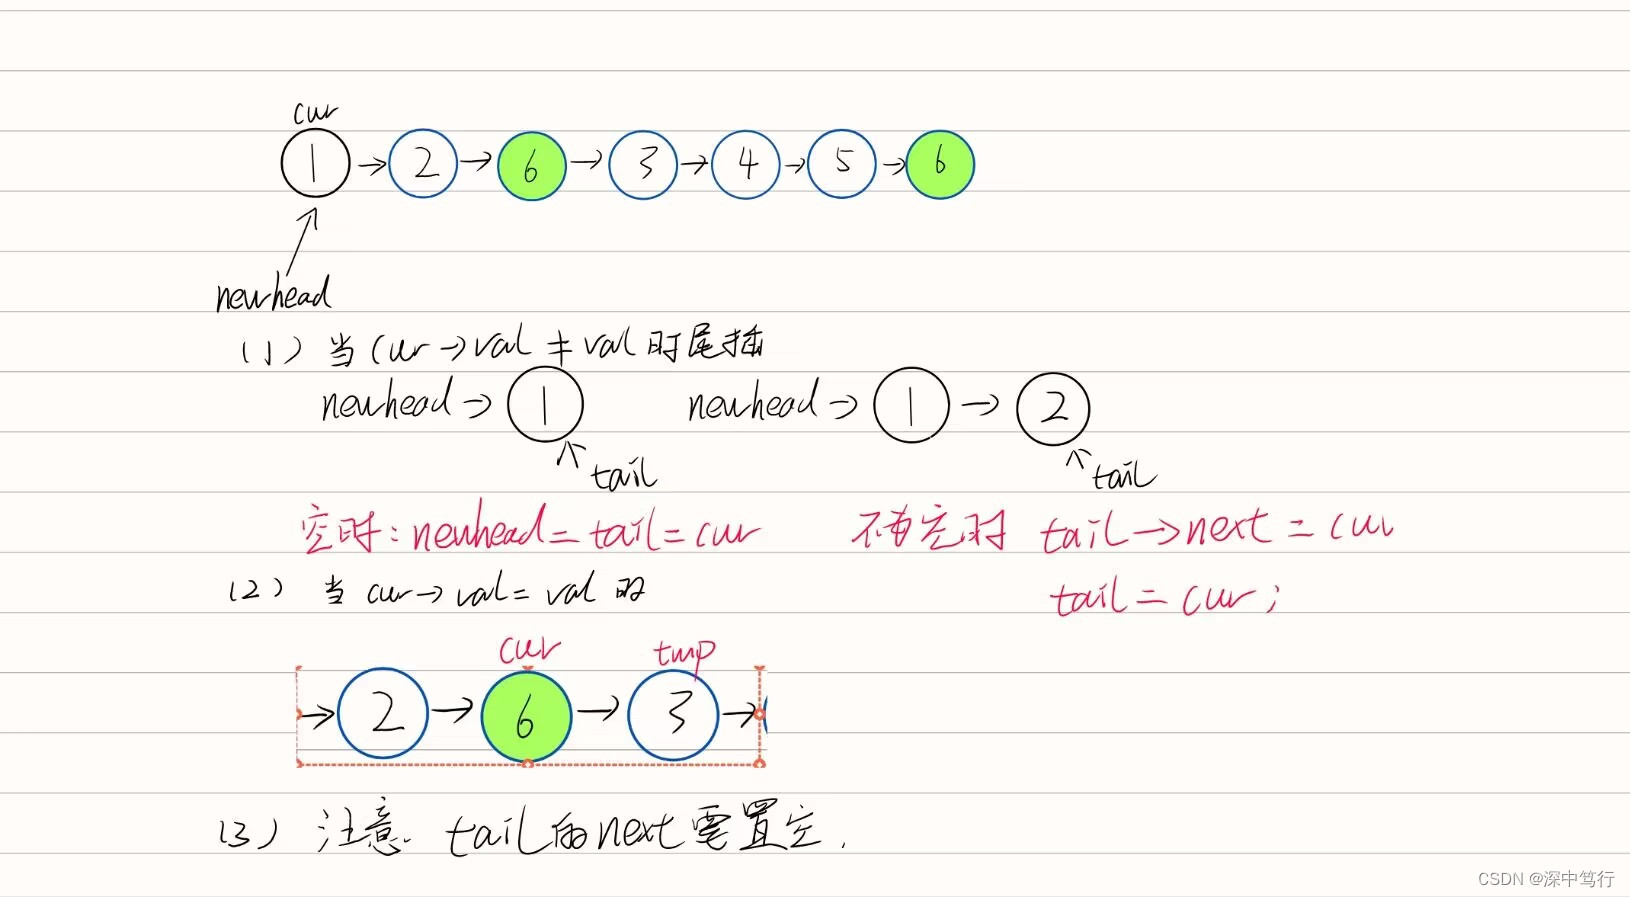 cur
1 → 2 → 6 → 3 → 4 → 5 → 6
newhead
(1) 当 cur→val ≠ val 时尾插
newhead → 1 newhead → 1 → 2
tail tail
空时: newhead = tail = cur 不为空时 tail→next = cur
(2) 当 cur→val = val 时 tail = cur;
cur tmp
→ 2 → 6 → 3 →
(3) 注意. tail的next需置空.
CSDN @深中笃行